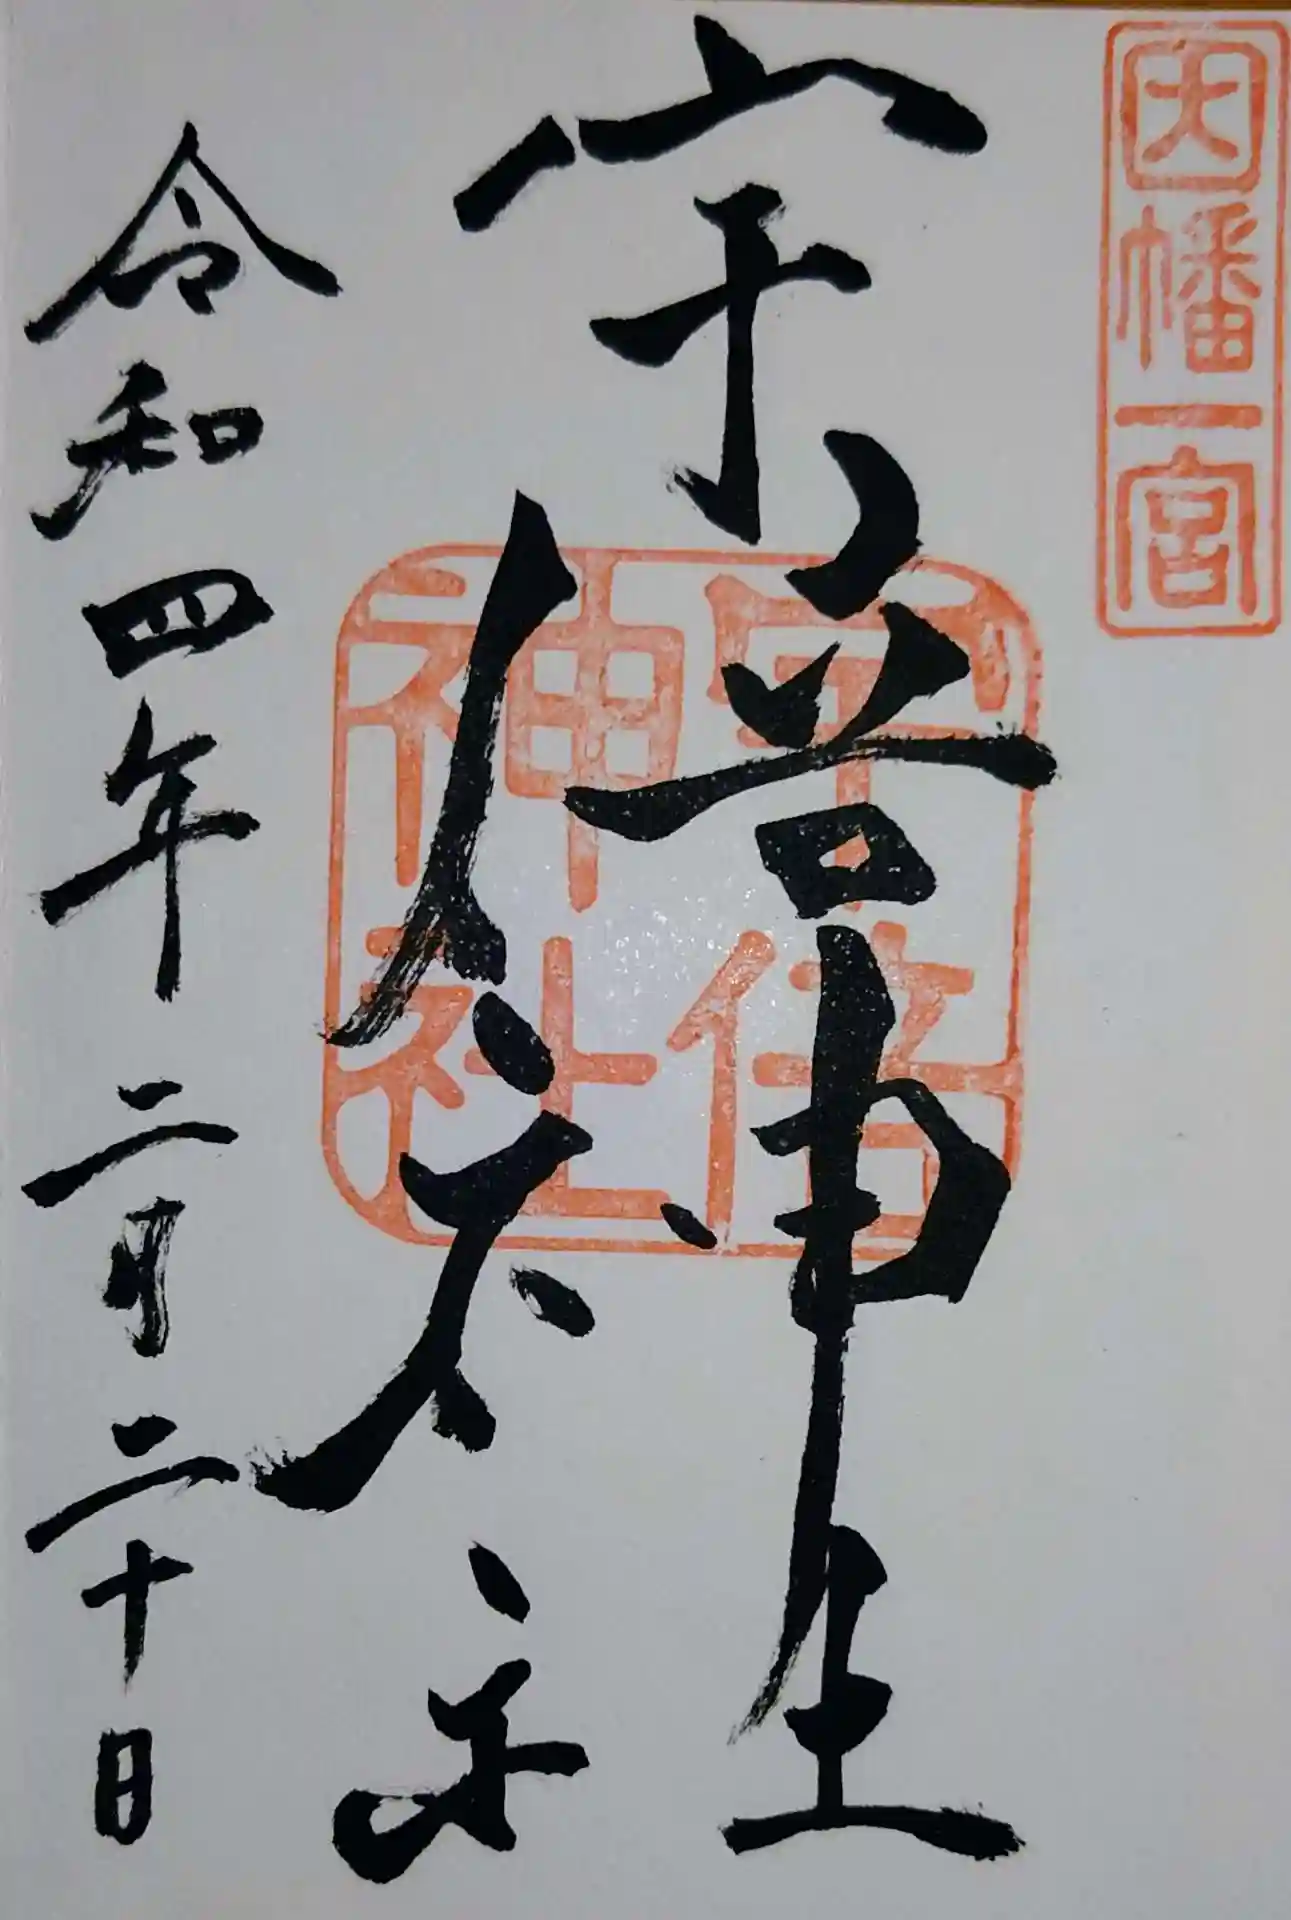 因幡一宮
宇倍神社
宇倍神社
令和四年二月二十日